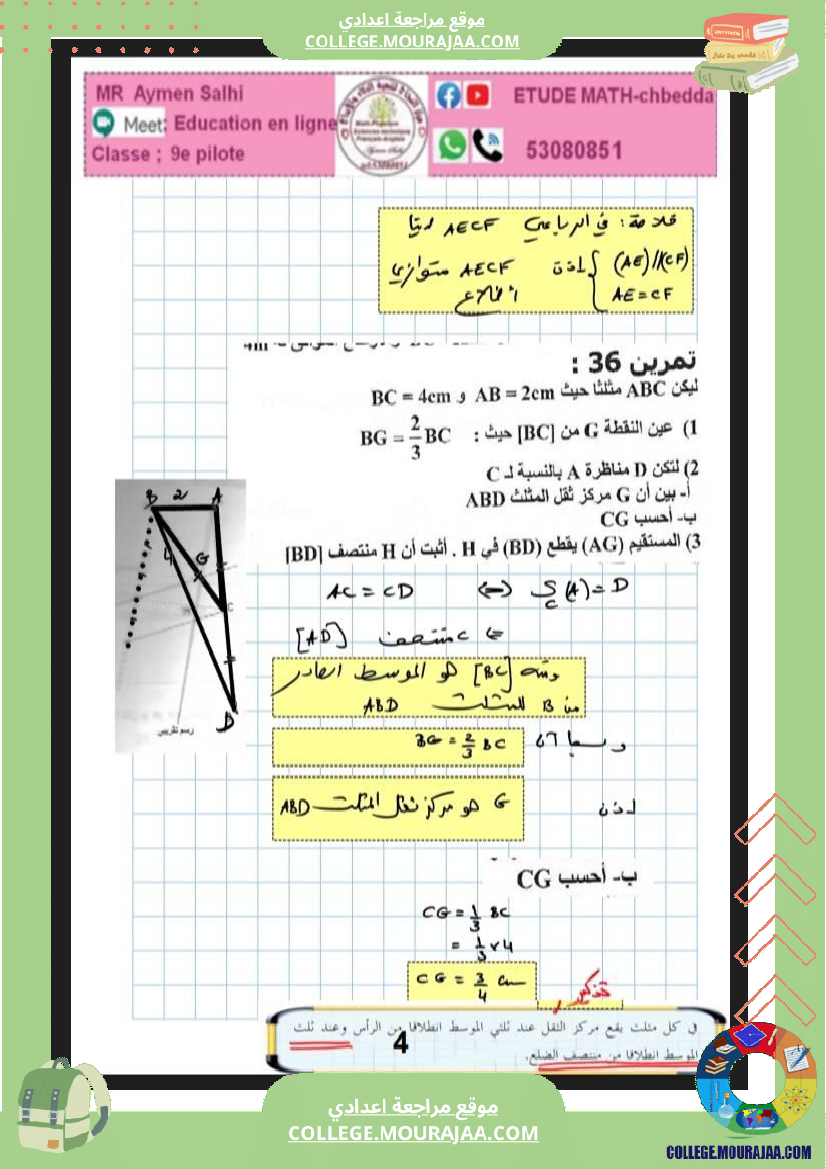 موقع مراجعة اعدادي
COLLEGE.MOURAJAA.COM
MR Aymen Salhi
Meet: Education en ligne
Classe ; 9e pilote
ETUDE MATH-chbedda
53080851
خلاصة: في الرباعي AECF لدينا
(AE)//(CF)
AE = CF
إذن AECF متوازي
أضلاع
تمرين 36 :
ليكن ABC مثلثا حيث AB = 2cm و BC = 4cm
1) عين النقطة G من [BC] حيث : BG = 2/3 BC
2) لتكن D مناظرة A بالنسبة لـ C
أ- بين أن G مركز ثقل المثلث ABD
ب- أحسب CG
3) المستقيم (AG) يقطع (BD) في H . أثبت أن H منتصف [BD]
B 2 A
4 G
C
D
رسم تقريبي
S_C(A) = D ⟺ AC = CD
C منتصف [AD]
ومنه [BC] هو الموسط الصادر
من B للمثلث ABD
وبما أن BG = 2/3 BC
إذن G هو مركز ثقل المثلث ABD
ب- أحسب CG
CG = 1/3 BC
= 1/3 × 4
CG = 3/4 cm
تذكير
في كل مثلث يقع مركز الثقل عند ثلثي الموسط انطلاقا من الرأس وعند ثلث
الموسط انطلاقا من منتصف الضلع.
4
موقع مراجعة اعدادي
COLLEGE.MOURAJAA.COM
COLLEGE.MOURAJAA.COM